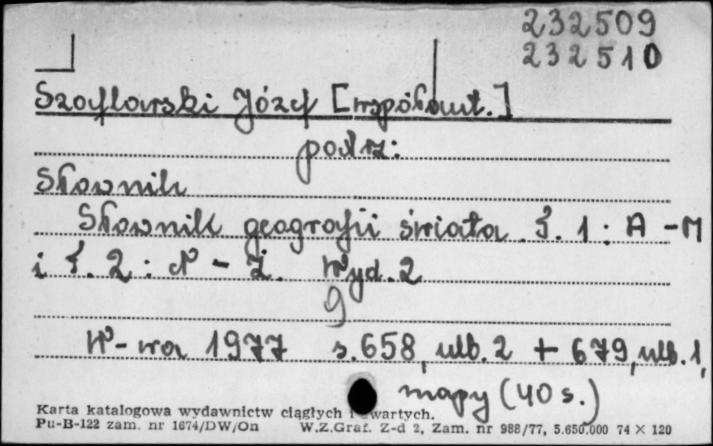 232509
232510
Szaflarski Józef [współaut.]
podrz:
Słownik
Słownik geografii świata T. 1: A-M
i T. 2: N-Ż. Wyd. 2
9
W-wa 1977 s. 658, ulb. 2 + 679, ulb. 1,
mapy (40 s.)
Karta katalogowa wydawnictw ciągłych i zwartych.
Pu-B-122 zam. nr 1674/DW/On W.Z.Graf. Z-d 2, Zam. nr 988/77, 5.650.000 74 × 120